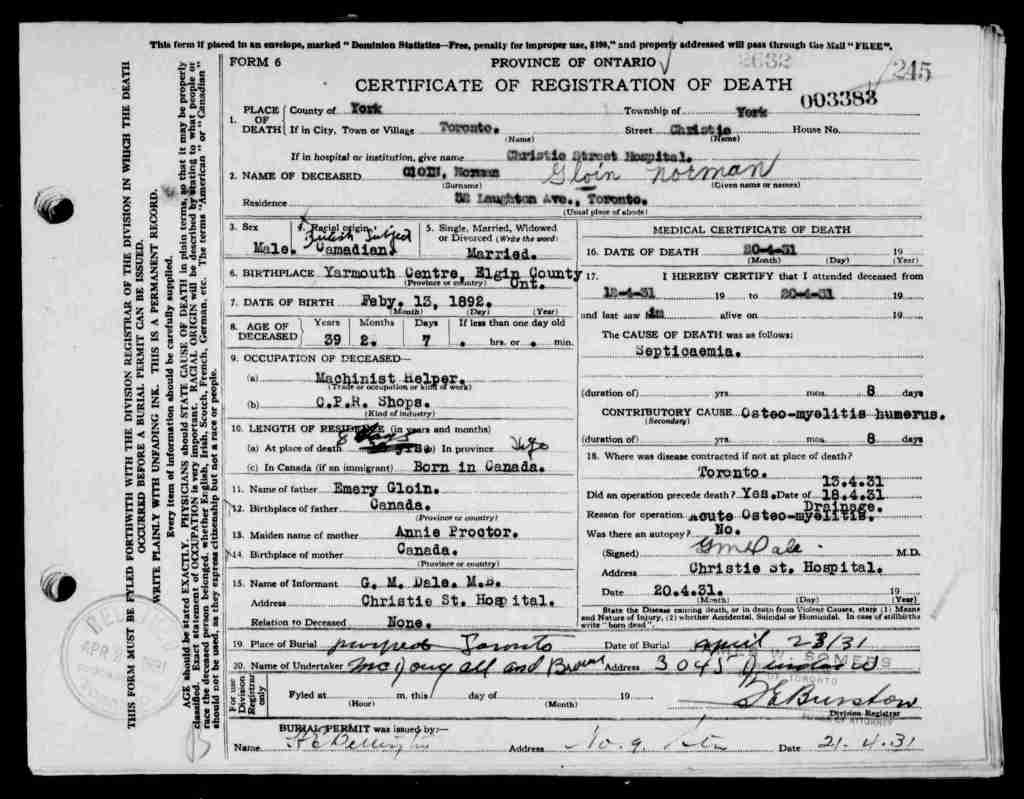 This form if placed in an envelope, marked "Dominion Statistics—Free, penalty for improper use, $100," and properly addressed will pass through the Mail "FREE".
FORM 6 PROVINCE OF ONTARIO 2632
CERTIFICATE OF REGISTRATION OF DEATH 245
003383
1. PLACE OF DEATH County of York Township of York
If in City, Town or Village Toronto. Street Christie House No.
(Name) (Name)
If in hospital or institution, give name Christie Street Hospital.
2. NAME OF DECEASED GLOIN, Norman Gloin Norman
(Surname) (Given name or names)
Residence 52 Laughton Ave., Toronto.
(Usual place of abode)
3. Sex Male.
4. Racial origin British Subject Camadian.
5. Single, Married, Widowed or Divorced (Write the word) Married.
6. BIRTHPLACE Yarmouth Centre, Elgin County Ont.
(Province or country)
7. DATE OF BIRTH Feby. 13, 1892.
(Month) (Day) (Year)
8. AGE OF DECEASED Years Months Days If less than one day old
39 2. 7 . hrs. or . min.
9. OCCUPATION OF DECEASED—
(a) Machinist Helper.
(Trade or occupation or kind of work)
(b) C.P.R. Shops.
(Kind of industry)
10. LENGTH OF RESIDENCE (in years and months)
(a) At place of death 8 days (b) In province Life
(c) In Canada (if an immigrant) Born in Canada.
11. Name of father Emery Gloin.
12. Birthplace of father Canada.
(Province or country)
13. Maiden name of mother Annie Proctor.
14. Birthplace of mother Canada.
(Province or country)
15. Name of Informant G. M. Dale. M.B.
Address Christie St. Hospital.
Relation to Deceased None.
MEDICAL CERTIFICATE OF DEATH
16. DATE OF DEATH 20-4-31 19
(Month) (Day) (Year)
17. I HEREBY CERTIFY that I attended deceased from
12-4-31 19 to 20-4-31 19
and last saw him alive on 19
The CAUSE OF DEATH was as follows:
Septicaemia.
(duration of) yrs. mos. 8 days
CONTRIBUTORY CAUSE Osteo-myelitis humerus.
(Secondary)
(duration of) yrs. mos. 8 days
18. Where was disease contracted if not at place of death?
Toronto.
13.4.31
Did an operation precede death? Yes. Date of 18.4.31
Drainage.
Reason for operation acute Osteo-myelitis.
Was there an autopsy? No.
(Signed) GM Dale M.D.
Address Christie St. Hospital.
Date 20.4.31. 19
(Month) (Day) (Year)
State the Disease causing death, or in death from Violent Causes, state (1) Means and Nature of Injury, (2) whether Accidental, Suicidal or Homicidal. In case of stillbirths write "born dead".
19. Place of Burial Prospect Toronto Date of Burial april 23/31
20. Name of Undertaker McDougall and Brown Address 3045 Dundas W
For use Division Registrar only Fyled at m. this day of 19
(Hour) (Month)
Division Registrar
BURIAL PERMIT was issued by:—
Name Address No. 9. Stn Date 21.4.31
THIS FORM MUST BE FYLED FORTHWITH WITH THE DIVISION REGISTRAR OF THE DIVISION IN WHICH THE DEATH
OCCURRED BEFORE A BURIAL PERMIT CAN BE ISSUED.
WRITE PLAINLY WITH UNFADING INK. THIS IS A PERMANENT RECORD.
Every item of information should be carefully supplied.
AGE should be stated EXACTLY. PHYSICIANS should STATE CAUSE OF DEATH in plain terms, so that it may be properly
classified. Exact statement of OCCUPATION is very important. RACIAL ORIGIN will be described by stating to what people or
race the deceased person belonged, whether English, Irish, Scotch, French, German, etc. The terms "American" or "Canadian"
should not be used, as they express citizenship but not a race or people.